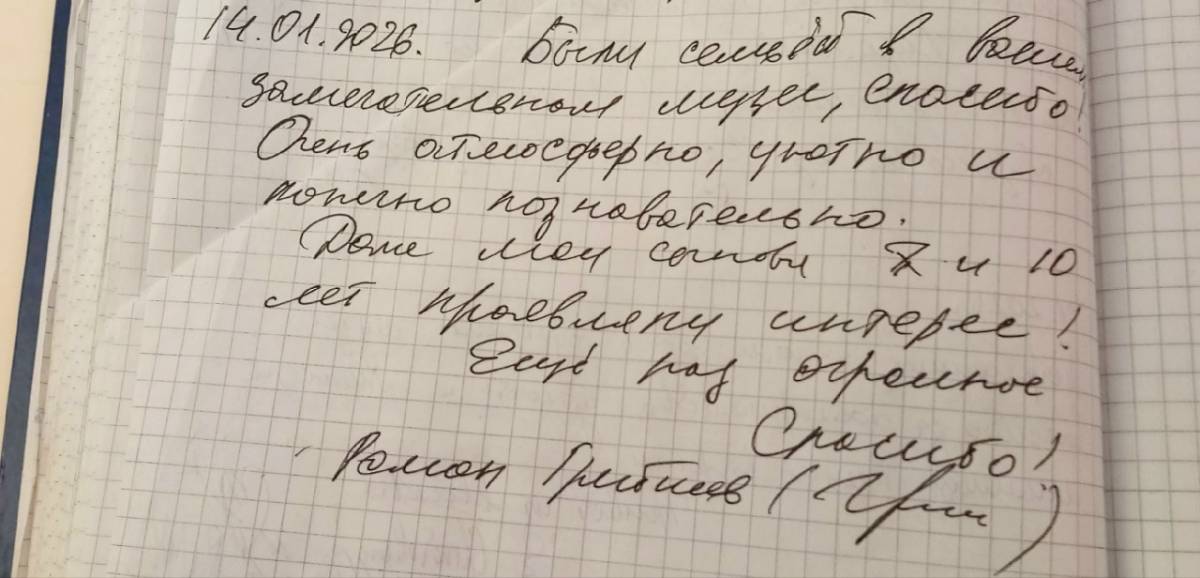 14.01.2026. Были семьёй в вашем
замечательном музее, спасибо!
Очень атмосферно, уютно и
конечно познавательно.
Даже мои сыновья 7 и 10
лет проявляли интерес!
Ещё раз огромное
Спасибо!
Роман